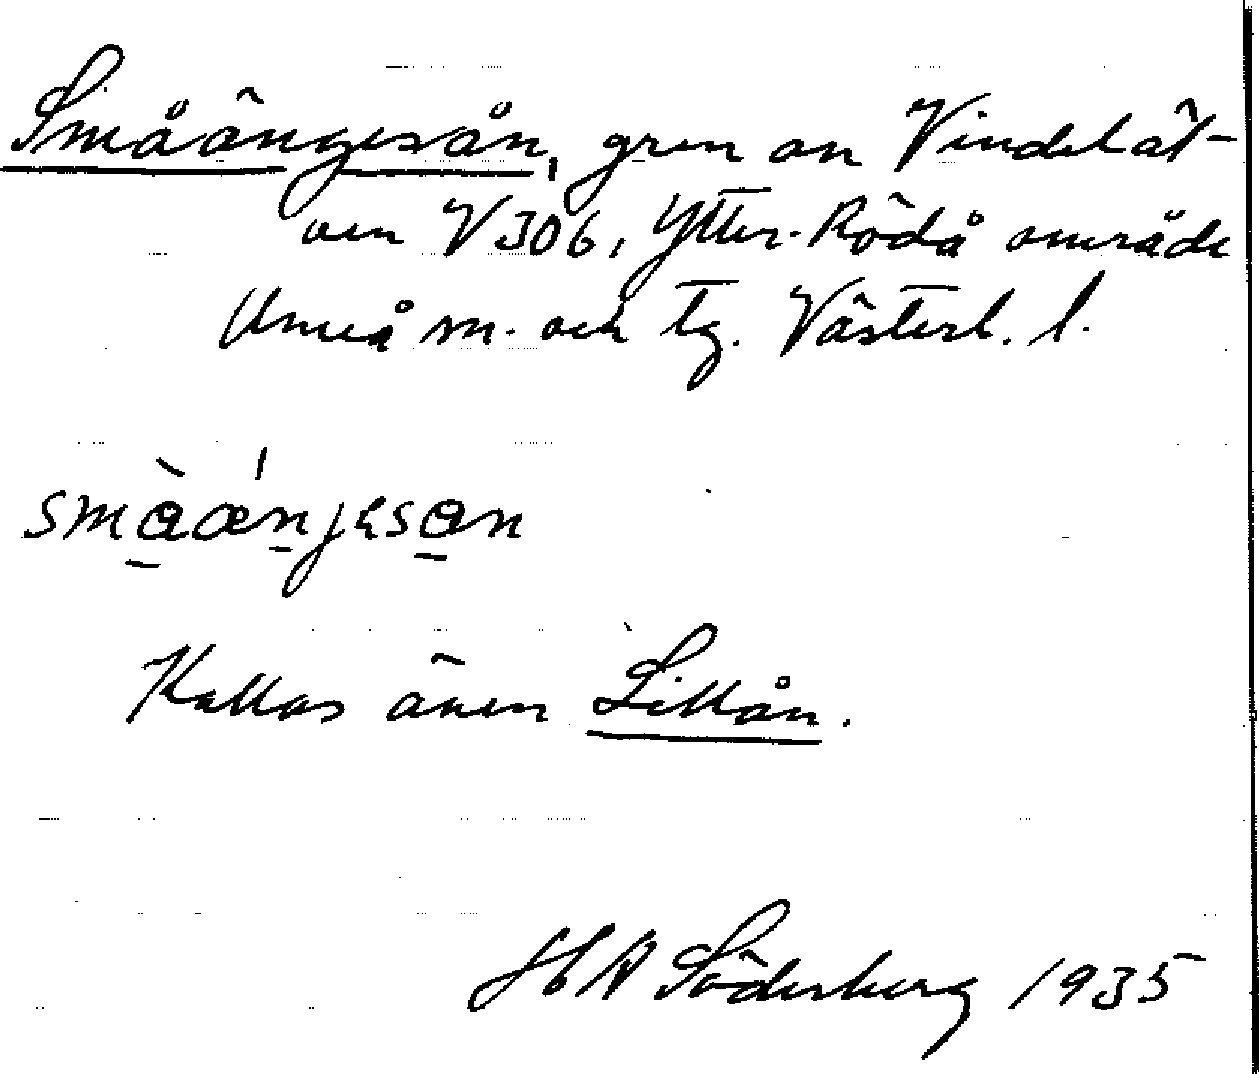 Småängesån, gren av Vindelälv-
en V 306, Ytter-Rödå område
Umeå sn. och tg. Västerb. l.
småænjesån
Kallas även Lillån.
H A Söderberg 1935